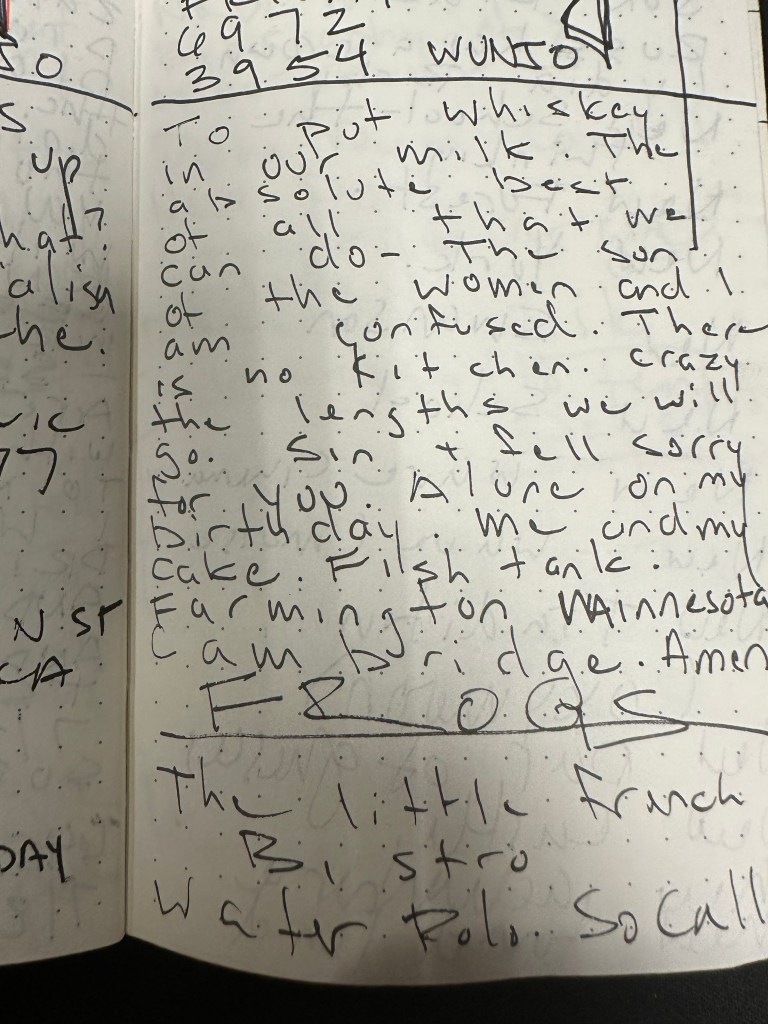 4972
3954 WUNJO
To put whiskey
in our milk. The
absolute best
of all that we
can do - The son
of the women and I
am confused. There
is no kitchen. crazy
the lengths we will
go. Sin + fell sorry
for you. Alune on my
birthday. me and my
cake. Filsh tank.
Farmington Mainnesota
Cambridge. Amen
The little french
Bistro
Water Polo. So Call
up
hat?
alish
the.
vic
77
N ST
CA
DAY